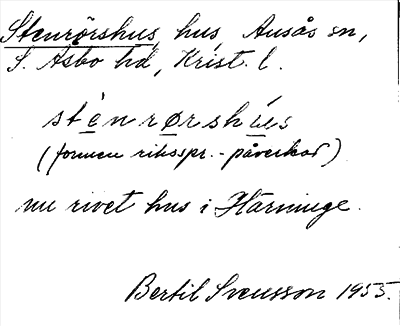 Stenrörshus, hus, Ausås sn,
S. Åsbo hd, Krist. l.
stènrørshús
(formen riksspr.-påverkad)
nu rivet hus i Härninge.
Bertil Svensson 1955.